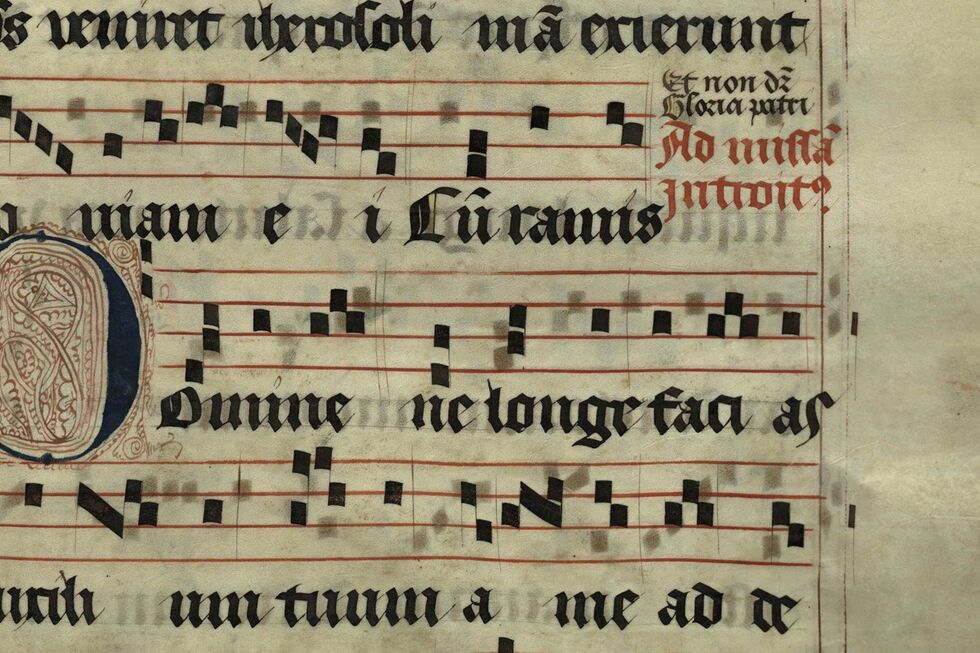 veniret iherosoli mā exierunt
Et non dr̄
Gloria patri
Ad missā
Introitꝰ
niam e i Cū ramis
Domine ne longe faci as
auxili um tuum a me ad de